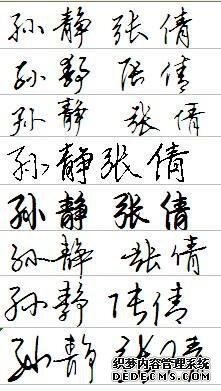 孙静 张倩
孙静 张倩
孙静 张倩
孙静张倩
孙静 张倩
孙静 张倩
孙静 张倩
孙静 张倩
织梦内容管理系统
DEDECMS.COM